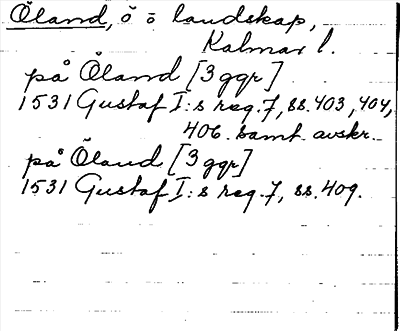 Öland, ö o landskap,
Kalmar l.
på Öland [3 ggr]
1531 Gustaf I:s reg. 7, ss. 403, 404,
406. Samt. avskr.
på Öland [3 ggr]
1531 Gustaf I:s reg. 7, ss. 409.